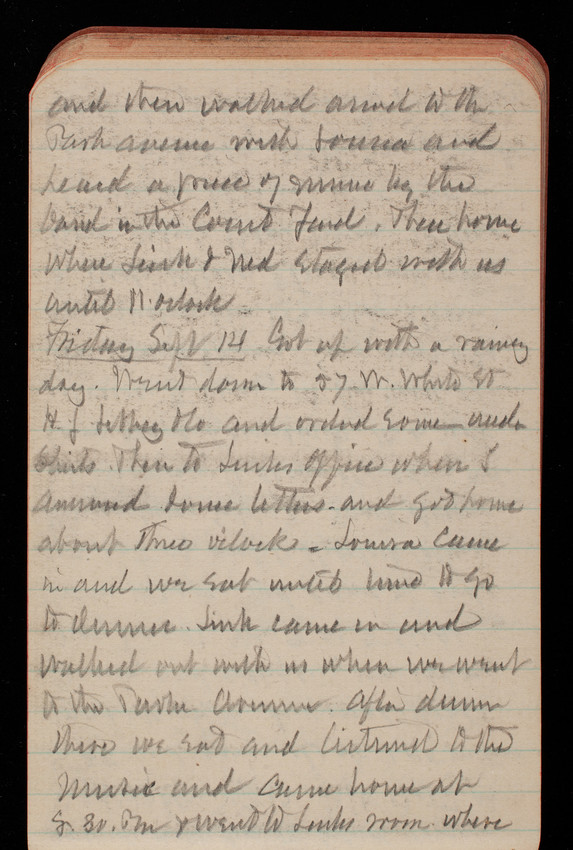 and then walked around to the
Park avenue with Louisa and
heard a piece of music by the
band in the Court Yard. Then home
where Link & Ned stayed with us
until 11 oclock
Friday Sept 14 Got up with a rainy
day. Went down to 57 W. White St
H J Libby &Co and ordered some under
Shirts. Then to Links office where I
answered some letters. and got home
about three oclock. Louisa came
in and we sat until time to go
to dinner. Link came in and
walked out with us when we went
to the Park Avenue. After dinner
there we sat and listened to the
Music and came home at
8.30. P.m & went to Links room where